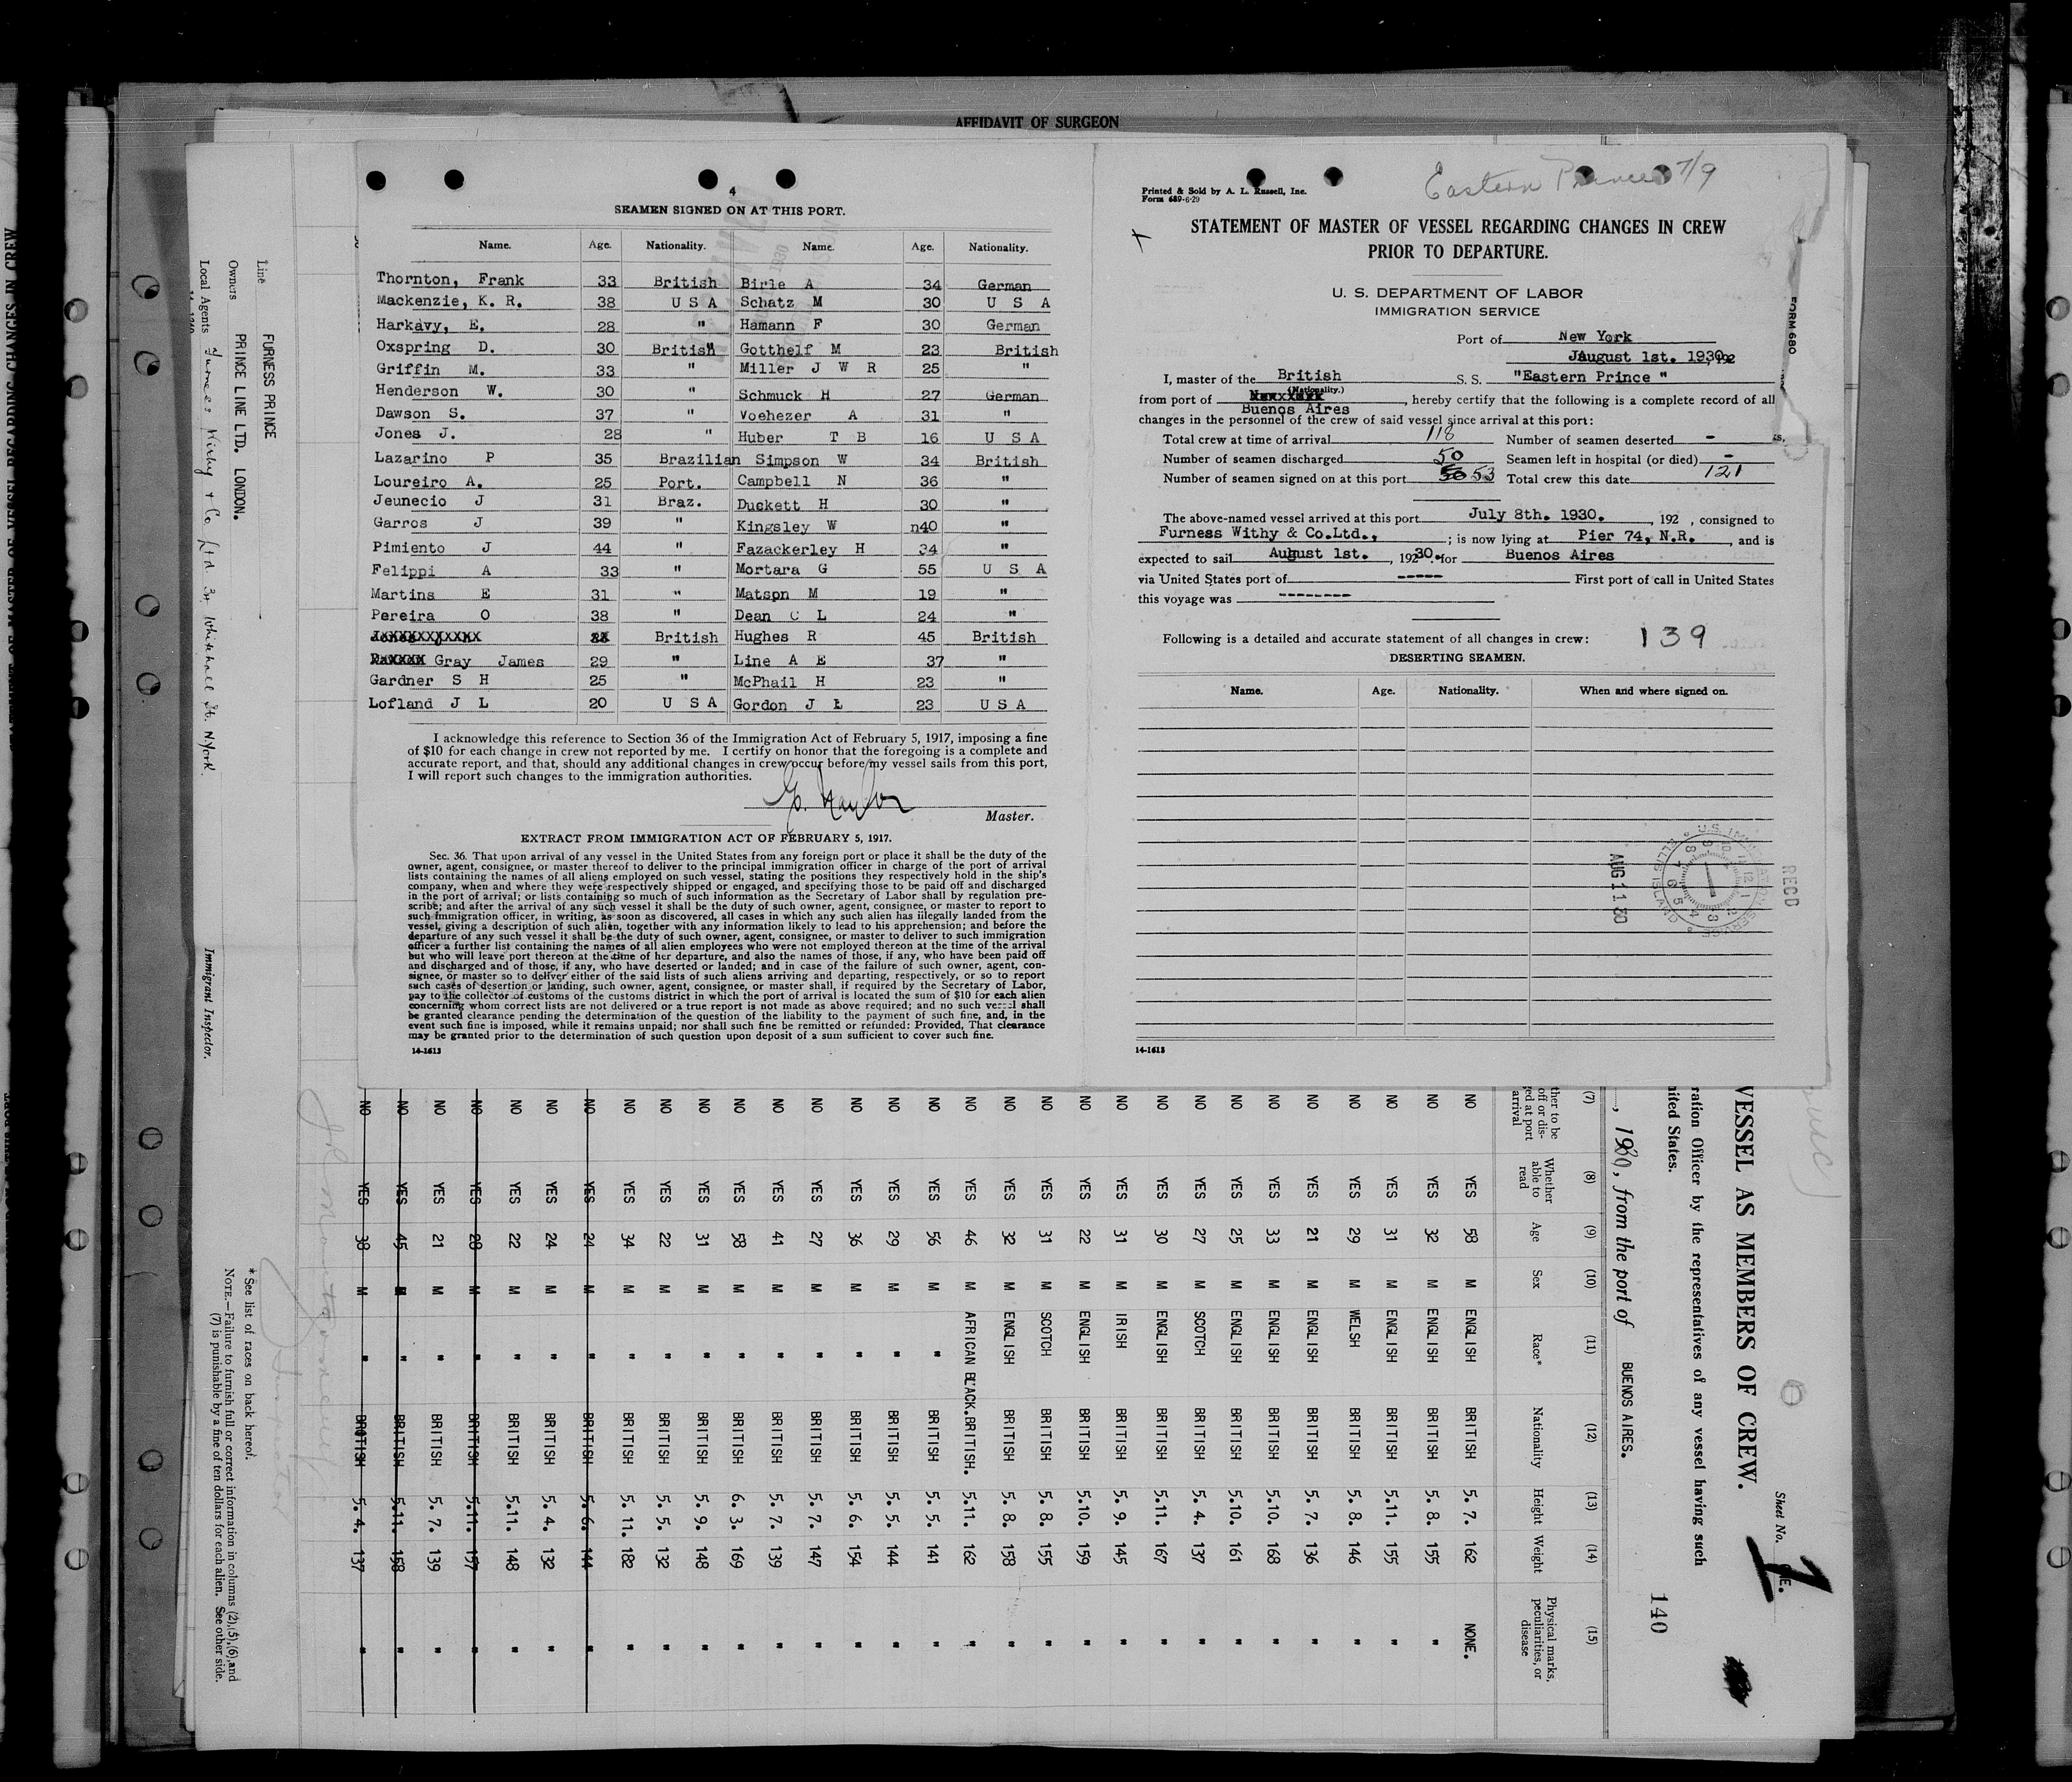 AFFIDAVIT OF SURGEON
4
SEAMEN SIGNED ON AT THIS PORT.
Name. Age. Nationality. Name. Age. Nationality.
Thornton, Frank 33 British Birle A 34 German
Mackenzie, K. R. 38 U S A Schatz M 30 U S A
Harkavy, E. 28 " Hamann F 30 German
Oxspring D. 30 British Gotthelf M 23 British
Griffin M. 33 " Miller J W R 25 "
Henderson W. 30 " Schmuck H 27 German
Dawson S. 37 " Voehezer A 31 "
Jones J. 28 " Huber T B 16 U S A
Lazarino P 35 Brazilian Simpson W 34 British
Loureiro A. 25 Port. Campbell N 36 "
Jeunecio J 31 Braz. Duckett H 30 "
Garros J 39 " Kingsley W n40 "
Pimiento J 44 " Fazackerley H 34 "
Felippi A 33 " Mortara G 55 U S A
Martins E 31 " Matspn M 19 "
Pereira O 38 " Dean C L 24 "
British Hughes R 45 British
Gray James 29 " Line A E 37 "
Gardner S H 25 " McPhail H 23 "
Lofland J L 20 U S A Gordon J L 23 U S A
I acknowledge this reference to Section 36 of the Immigration Act of February 5, 1917, imposing a fine
of $10 for each change in crew not reported by me. I certify on honor that the foregoing is a complete and
accurate report, and that, should any additional changes in crew occur before my vessel sails from this port,
I will report such changes to the immigration authorities.
Master.
EXTRACT FROM IMMIGRATION ACT OF FEBRUARY 5, 1917.
Sec. 36. That upon arrival of any vessel in the United States from any foreign port or place it shall be the duty of the
owner, agent, consignee, or master thereof to deliver to the principal immigration officer in charge of the port of arrival
lists containing the names of all aliens employed on such vessel, stating the positions they respectively hold in the ship's
company, when and where they were respectively shipped or engaged, and specifying those to be paid off and discharged
in the port of arrival; or lists containing so much of such information as the Secretary of Labor shall by regulation pre-
scribe; and after the arrival of any such vessel it shall be the duty of such owner, agent, consignee, or master to report to
such immigration officer, in writing, as soon as discovered, all cases in which any such alien has illegally landed from the
vessel, giving a description of such alien, together with any information likely to lead to his apprehension; and before the
departure of any such vessel it shall be the duty of such owner, agent, consignee, or master to deliver to such immigration
officer a further list containing the names of all alien employees who were not employed thereon at the time of the arrival
but who will leave port thereon at the time of her departure, and also the names of those, if any, who have been paid off
and discharged and of those, if any, who have deserted or landed; and in case of the failure of such owner, agent, con-
signee, or master so to deliver either of the said lists of such aliens arriving and departing, respectively, or so to report
such cases of desertion or landing, such owner, agent, consignee, or master shall, if required by the Secretary of Labor,
pay to the collector of customs of the customs district in which the port of arrival is located the sum of $10 for each alien
concerning whom correct lists are not delivered or a true report is not made as above required; and no such vessel shall
be granted clearance pending the determination of the question of the liability to the payment of such fine, and, in the
event such fine is imposed, while it remains unpaid; nor shall such fine be remitted or refunded: Provided, That clearance
may be granted prior to the determination of such question upon deposit of a sum sufficient to cover such fine.
14-1613
Eastern Prince 7/9
Printed & Sold by A. L. Russell, Inc.
Form 689-6-29
STATEMENT OF MASTER OF VESSEL REGARDING CHANGES IN CREW
PRIOR TO DEPARTURE.
U. S. DEPARTMENT OF LABOR
IMMIGRATION SERVICE
Port of New York
August 1st. 1930, 192
I, master of the British S. S. "Eastern Prince"
(Nationality.)
from port of Buenos Aires, hereby certify that the following is a complete record of all
changes in the personnel of the crew of said vessel since arrival at this port:
Total crew at time of arrival 118 Number of seamen deserted -
Number of seamen discharged 50 Seamen left in hospital (or died) -
Number of seamen signed on at this port 53 Total crew this date 121
The above-named vessel arrived at this port July 8th. 1930. , 192 , consigned to
Furness Withy & Co.Ltd., ; is now lying at Pier 74, N.R. , and is
expected to sail August 1st. , 1930. for Buenos Aires
via United States port of ----- First port of call in United States
this voyage was --------
Following is a detailed and accurate statement of all changes in crew: 139
DESERTING SEAMEN.
Name. Age. Nationality. When and where signed on.
U.S. IMMIGRATION SERVICE ELLIS ISLAND
AUG 1 1 30
RECD
14-1613
FORM 680
Line FURNESS PRINCE
Owners PRINCE LINE LTD. LONDON.
Local Agents Furness Withy & Co Ltd. 34 Whitehall St. N.York.
Immigrant Inspector.
VESSEL AS MEMBERS OF CREW.
Sheet No. 1
140
ration Officer by the representatives of any vessel having such
nited States.
, 1930, from the port of BUENOS AIRES.
(7) (8) (9) (10) (11) (12) (13) (14) (15)
ther to be off or dis- ed at port arrival Whether able to read Age Sex Race* Nationality Height Weight Physical marks, peculiarities, or disease
NO YES 58 M ENGLISH BRITISH 5. 7. 162 NONE.
NO YES 32 M ENGLISH BRITISH 5. 8. 155 "
NO YES 31 M ENGLISH BRITISH 5.11. 155 "
NO YES 29 M WELSH BRITISH 5. 8. 146 "
NO YES 21 M ENGLISH BRITISH 5. 7. 136 "
NO YES 33 M ENGLISH BRITISH 5.10. 168 "
NO YES 25 M ENGLISH BRITISH 5.10. 161 "
NO YES 27 M SCOTCH BRITISH 5. 4. 137 "
NO YES 30 M ENGLISH BRITISH 5.11. 167 "
NO YES 31 M IRISH BRITISH 5. 9. 145 "
NO YES 22 M ENGLISH BRITISH 5.10. 159 "
NO YES 31 M SCOTCH BRITISH 5. 8. 155 "
NO YES 32 M ENGLISH BRITISH 5. 8. 158 "
NO YES 46 M AFRICAN BLACK. BRITISH. 5.11. 162 "
NO YES 56 M " BRITISH 5. 5. 141 "
NO YES 29 M " BRITISH 5. 5. 144 "
NO YES 36 M " BRITISH 5. 6. 154 "
NO YES 27 M " BRITISH 5. 7. 147 "
NO YES 41 M " BRITISH 5. 7. 139 "
NO YES 58 M " BRITISH 6. 3. 169 "
NO YES 31 M " BRITISH 5. 9. 148 "
NO YES 22 M " BRITISH 5. 5. 132 "
NO YES 34 M " BRITISH 5. 11. 182 "
NO YES 24 M " BRITISH 5. 6. 144 "
NO YES 24 M " BRITISH 5. 4. 132 "
NO YES 22 M " BRITISH 5.11. 148 "
NO YES 28 M " BRITISH 5.11. 157 "
NO YES 21 M " BRITISH 5. 7. 139 "
NO YES 45 M " BRITISH 5.11. 158 "
NO YES 38 M " BRITISH 5. 4. 137 "
* See list of races on back hereof.
NOTE.—Failure to furnish full or correct information in columns (2),(5),(6), and
(7) is punishable by a fine of ten dollars for each alien. See other side.